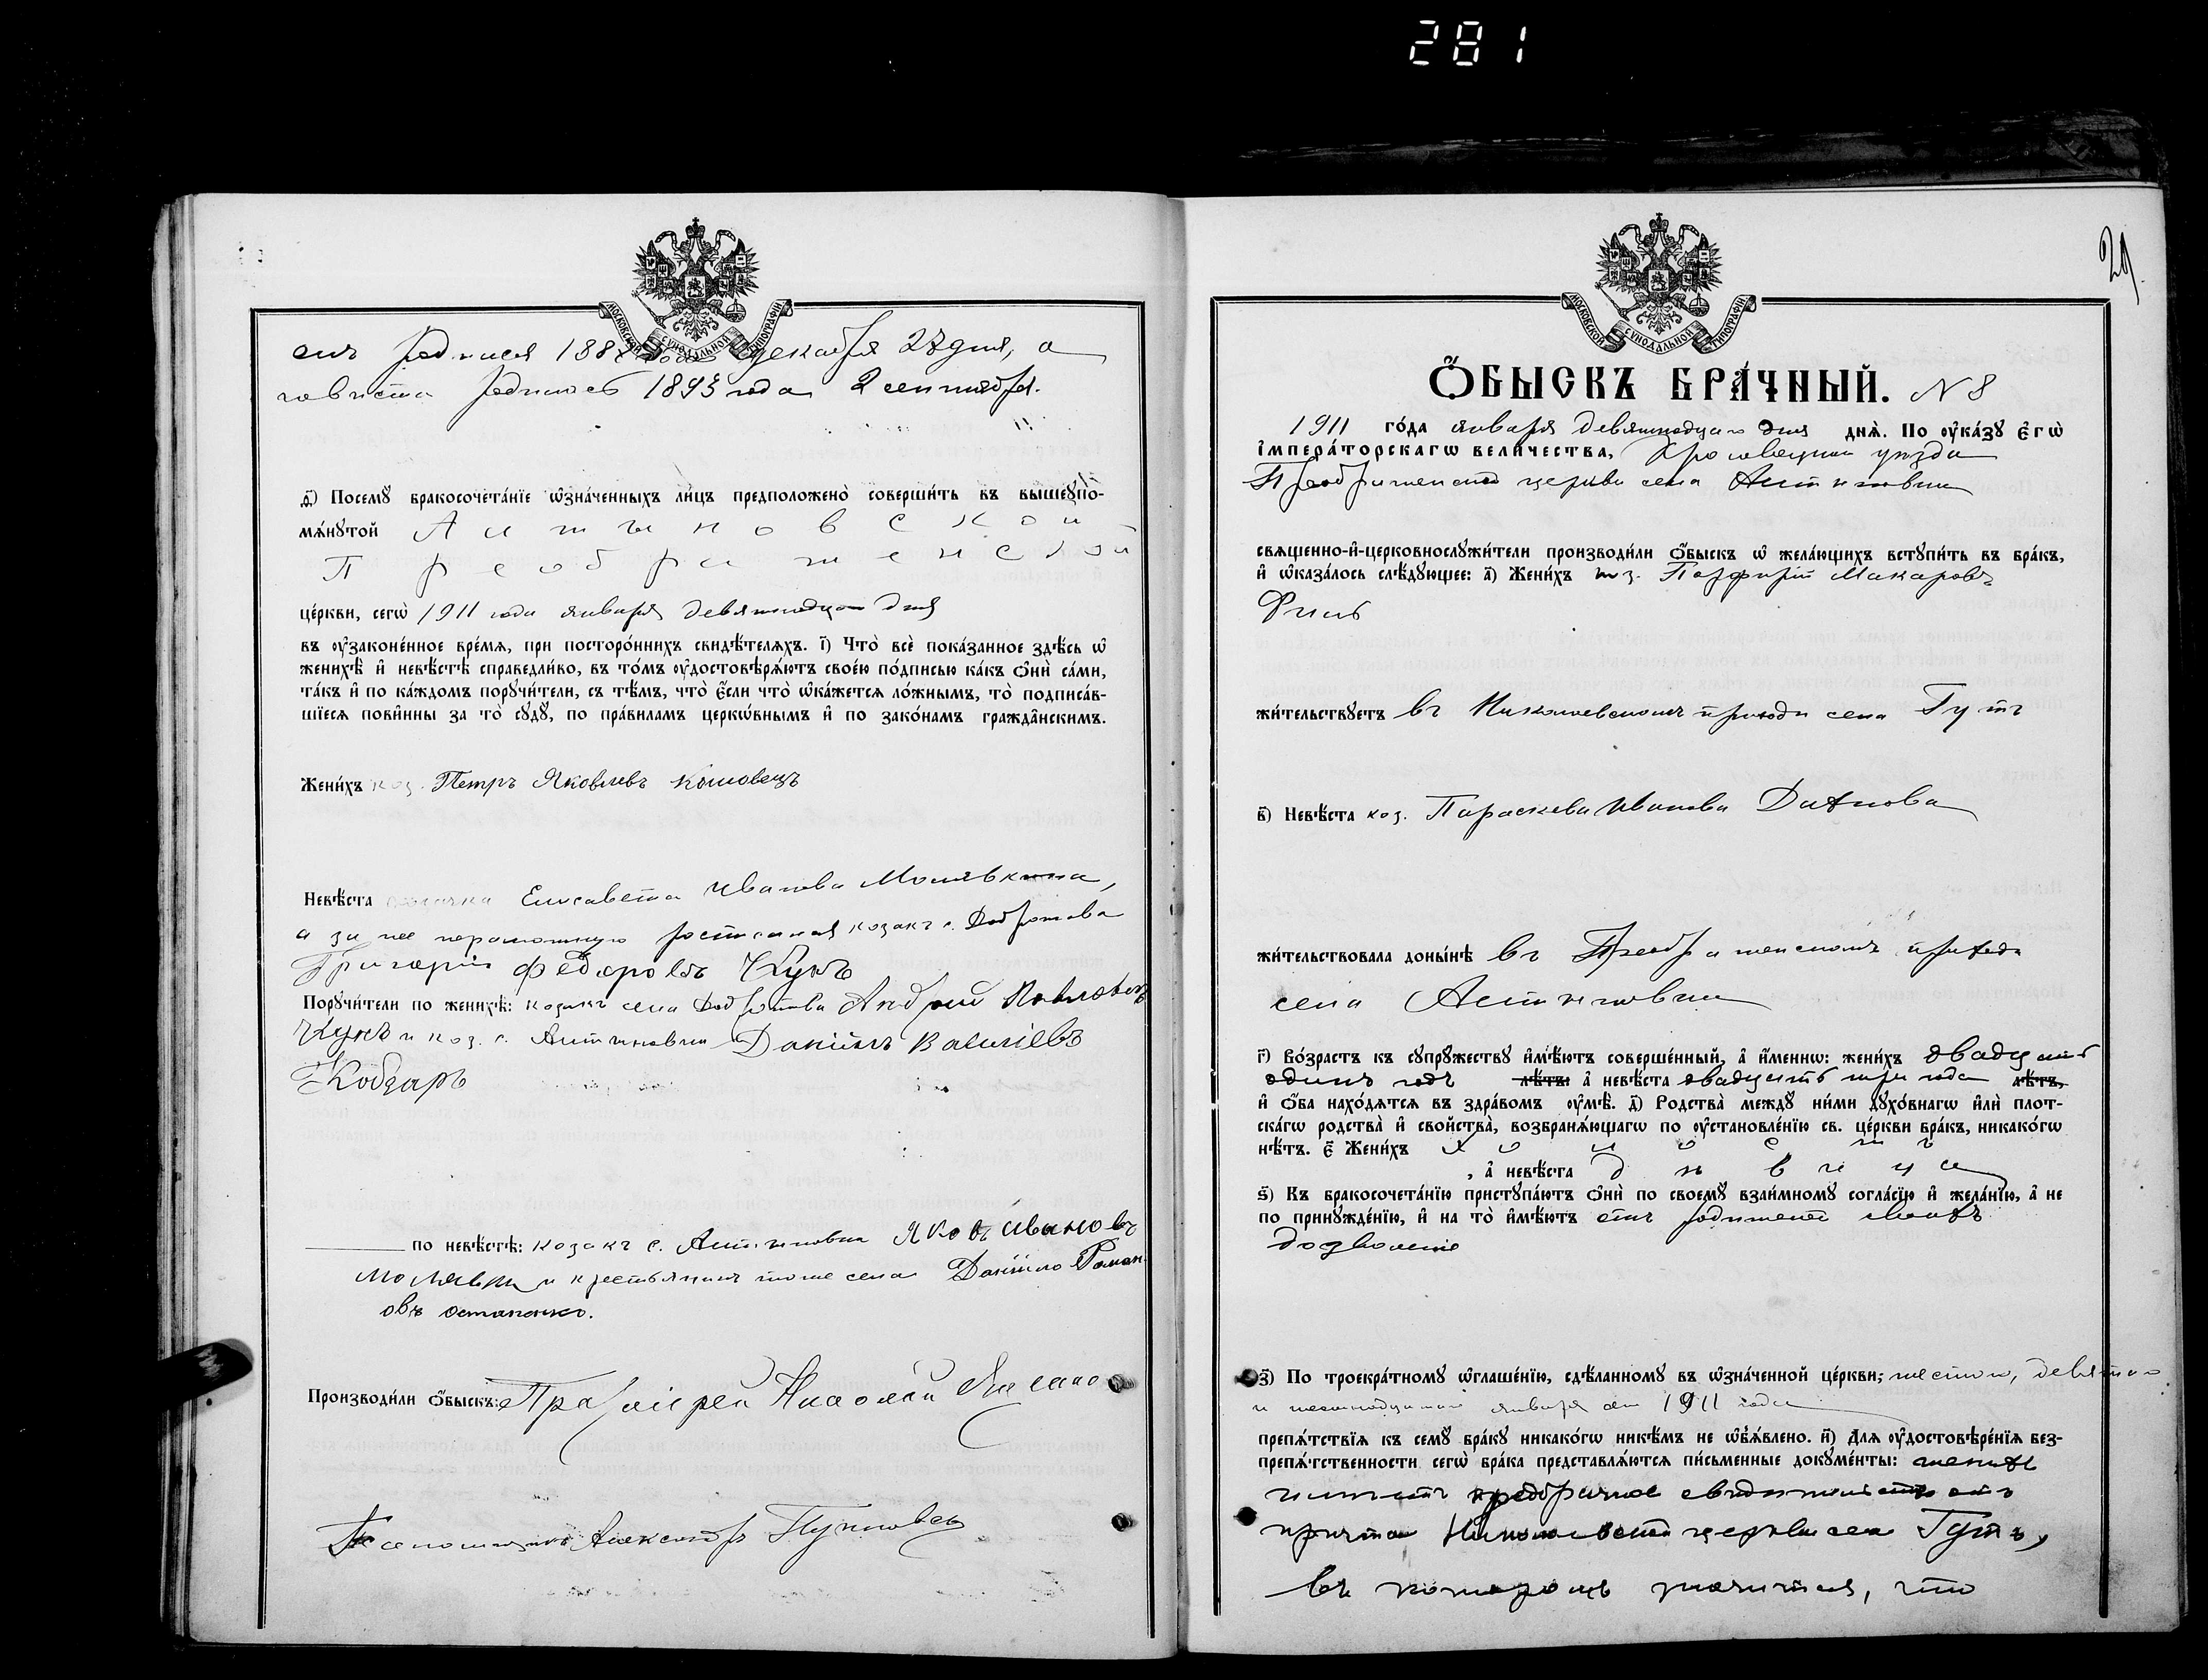 281
МОСКОВСКОЙ СѴНОДАЛЬНОЙ ТИПОГРАФІИ
онъ родился 1888 года декабря 28 дня, а
невѣста родилась 1893 года 2 сентября.
д҃) Посемꙋ бракосочета́нїе ѡ҆зна́ченныхъ ли́цъ предположено̀ соверши́ть въ вышеꙋпо-
мѧ́нꙋтой Алтыновской
Преображенской
це́ркви, сегѡ̀ 1911 года января девятнадцаго дня
въ ᲂу҆законе́нное вре́мѧ, при посторо́ннихъ свидѣ́телѧхъ. і҃) Что̀ всѐ пока́занное здѣ́сь ѡ҆
женихѣ̀ и҆ невѣ́стѣ справедли́во, въ то́мъ ᲂу҆достовѣрѧ́ютъ свое́ю по́дписью ка́къ ѻ҆нѝ са́ми,
та́къ и҆ по ка́ждомъ порꙋчи́тели, съ тѣ́мъ, что̀ є҆́сли что̀ ѡ҆ка́жетсѧ ло́жнымъ, то̀ подписа́в-
шїесѧ пови́нны за то̀ сꙋдꙋ̀, по пра́виламъ церко́внымъ и҆ по зако́намъ гражда́нскимъ.
Жени́хъ коз. Петръ Яковлевъ
Невѣ́ста козачка Елисавета Иванова Молявкина,
а за нее неграмотную росписался козакъ с. Добротова
Григорій Федоровъ Чкунъ
Порꙋчи́тели по женихѣ̀: козакъ села Добротова Андрей Павловичъ
и коз. с. Алтыновки Даніилъ Василіевъ
Кобзарь
по невѣ́стѣ: козакъ с. Алтыновки Яковъ Ивановъ
Молявка и крестьянинъ того же села Даніило Роман-
овъ Остапенко.
Производи́ли ѻ҆́быскъ: Николай
Псаломщикъ Александр
29.
МОСКОВСКОЙ СѴНОДАЛЬНОЙ ТИПОГРАФІИ
Ѻ҆́БЫСКЪ БРА́ЧНЫЙ. N 8
1911 го́да января девятнадцаго дня днѧ̀. По ᲂу҆ка́зꙋ є҆гѡ̀
і҆мпера́торскагѡ вели́чества, Кролевецкаго уѣзда
Преображенской церкви села Алтыновки
свѧще́нно-и҆-церковнослꙋжи́тели производи́ли ѻ҆́быскъ ѡ҆ жела́ющихъ встꙋпи́ть въ бра́къ,
и҆ ѡ҆каза́лось слѣ́дꙋющее: а҃) Жени́хъ коз. Порфирій Макаровъ
жи́тельствꙋетъ въ Николаевскомъ приходѣ села Гутъ
в҃) Невѣ́ста коз. Параскева Иванова
жи́тельствовала доны́нѣ въ Преображенскомъ приходѣ
села Алтыновки
г҃) Во́зрастъ къ сꙋпрꙋ́жествꙋ и҆мѣ́ютъ соверше́нный, а҆ и҆́меннѡ: жени́хъ двадцать
одинъ годъ лѣ́тъ: а҆ невѣ́ста двадцать три года лѣ́тъ,
и҆ ѻ҆́ба нахо́дѧтсѧ въ здра́вомъ ᲂу҆мѣ̀. д҃) Родства̀ междꙋ̀ ни́ми дꙋхо́внагѡ и҆лѝ плот-
ска́гѡ родства̀ и҆ сво́йства̀, возбранѧ́ющагѡ по ᲂу҆становле́нїю св. це́ркви бра́къ, никако́гѡ
нѣ́тъ. є҃) Жени́хъ холостъ
, а҆ невѣ́ста дѣвица
ѕ҃) Къ бракосочета́нїю пристꙋпа́ютъ ѻ҆нѝ по своемꙋ̀ взаи́мномꙋ согла́сїю и҆ жела́нїю, а҆ не
по принꙋжде́нїю, и҆ на то̀ и҆мѣ́ютъ отъ родителей своихъ
дозволеніе
з҃) По троекра́тномꙋ ѡ҆глаше́нїю, сдѣ́ланномꙋ въ ѡ҆зна́ченной це́ркви; шестого, девятаго
и шестнадцатаго января сего 1911 года
препѧ́тствїѧ къ семꙋ̀ бра́кꙋ никако́гѡ никѣ́мъ не ѡ҆б̾ѧ́влено. и҃) Длѧ ᲂу҆достовѣре́нїѧ без-
препѧ́тственности сегѡ̀ бра́ка представлѧ́ютсѧ пи́сьменные докꙋме́нты: женихъ
имѣетъ предбрачное свидѣтельство отъ
причта Николаевской церкви села Гутъ,
въ которомъ значится, что